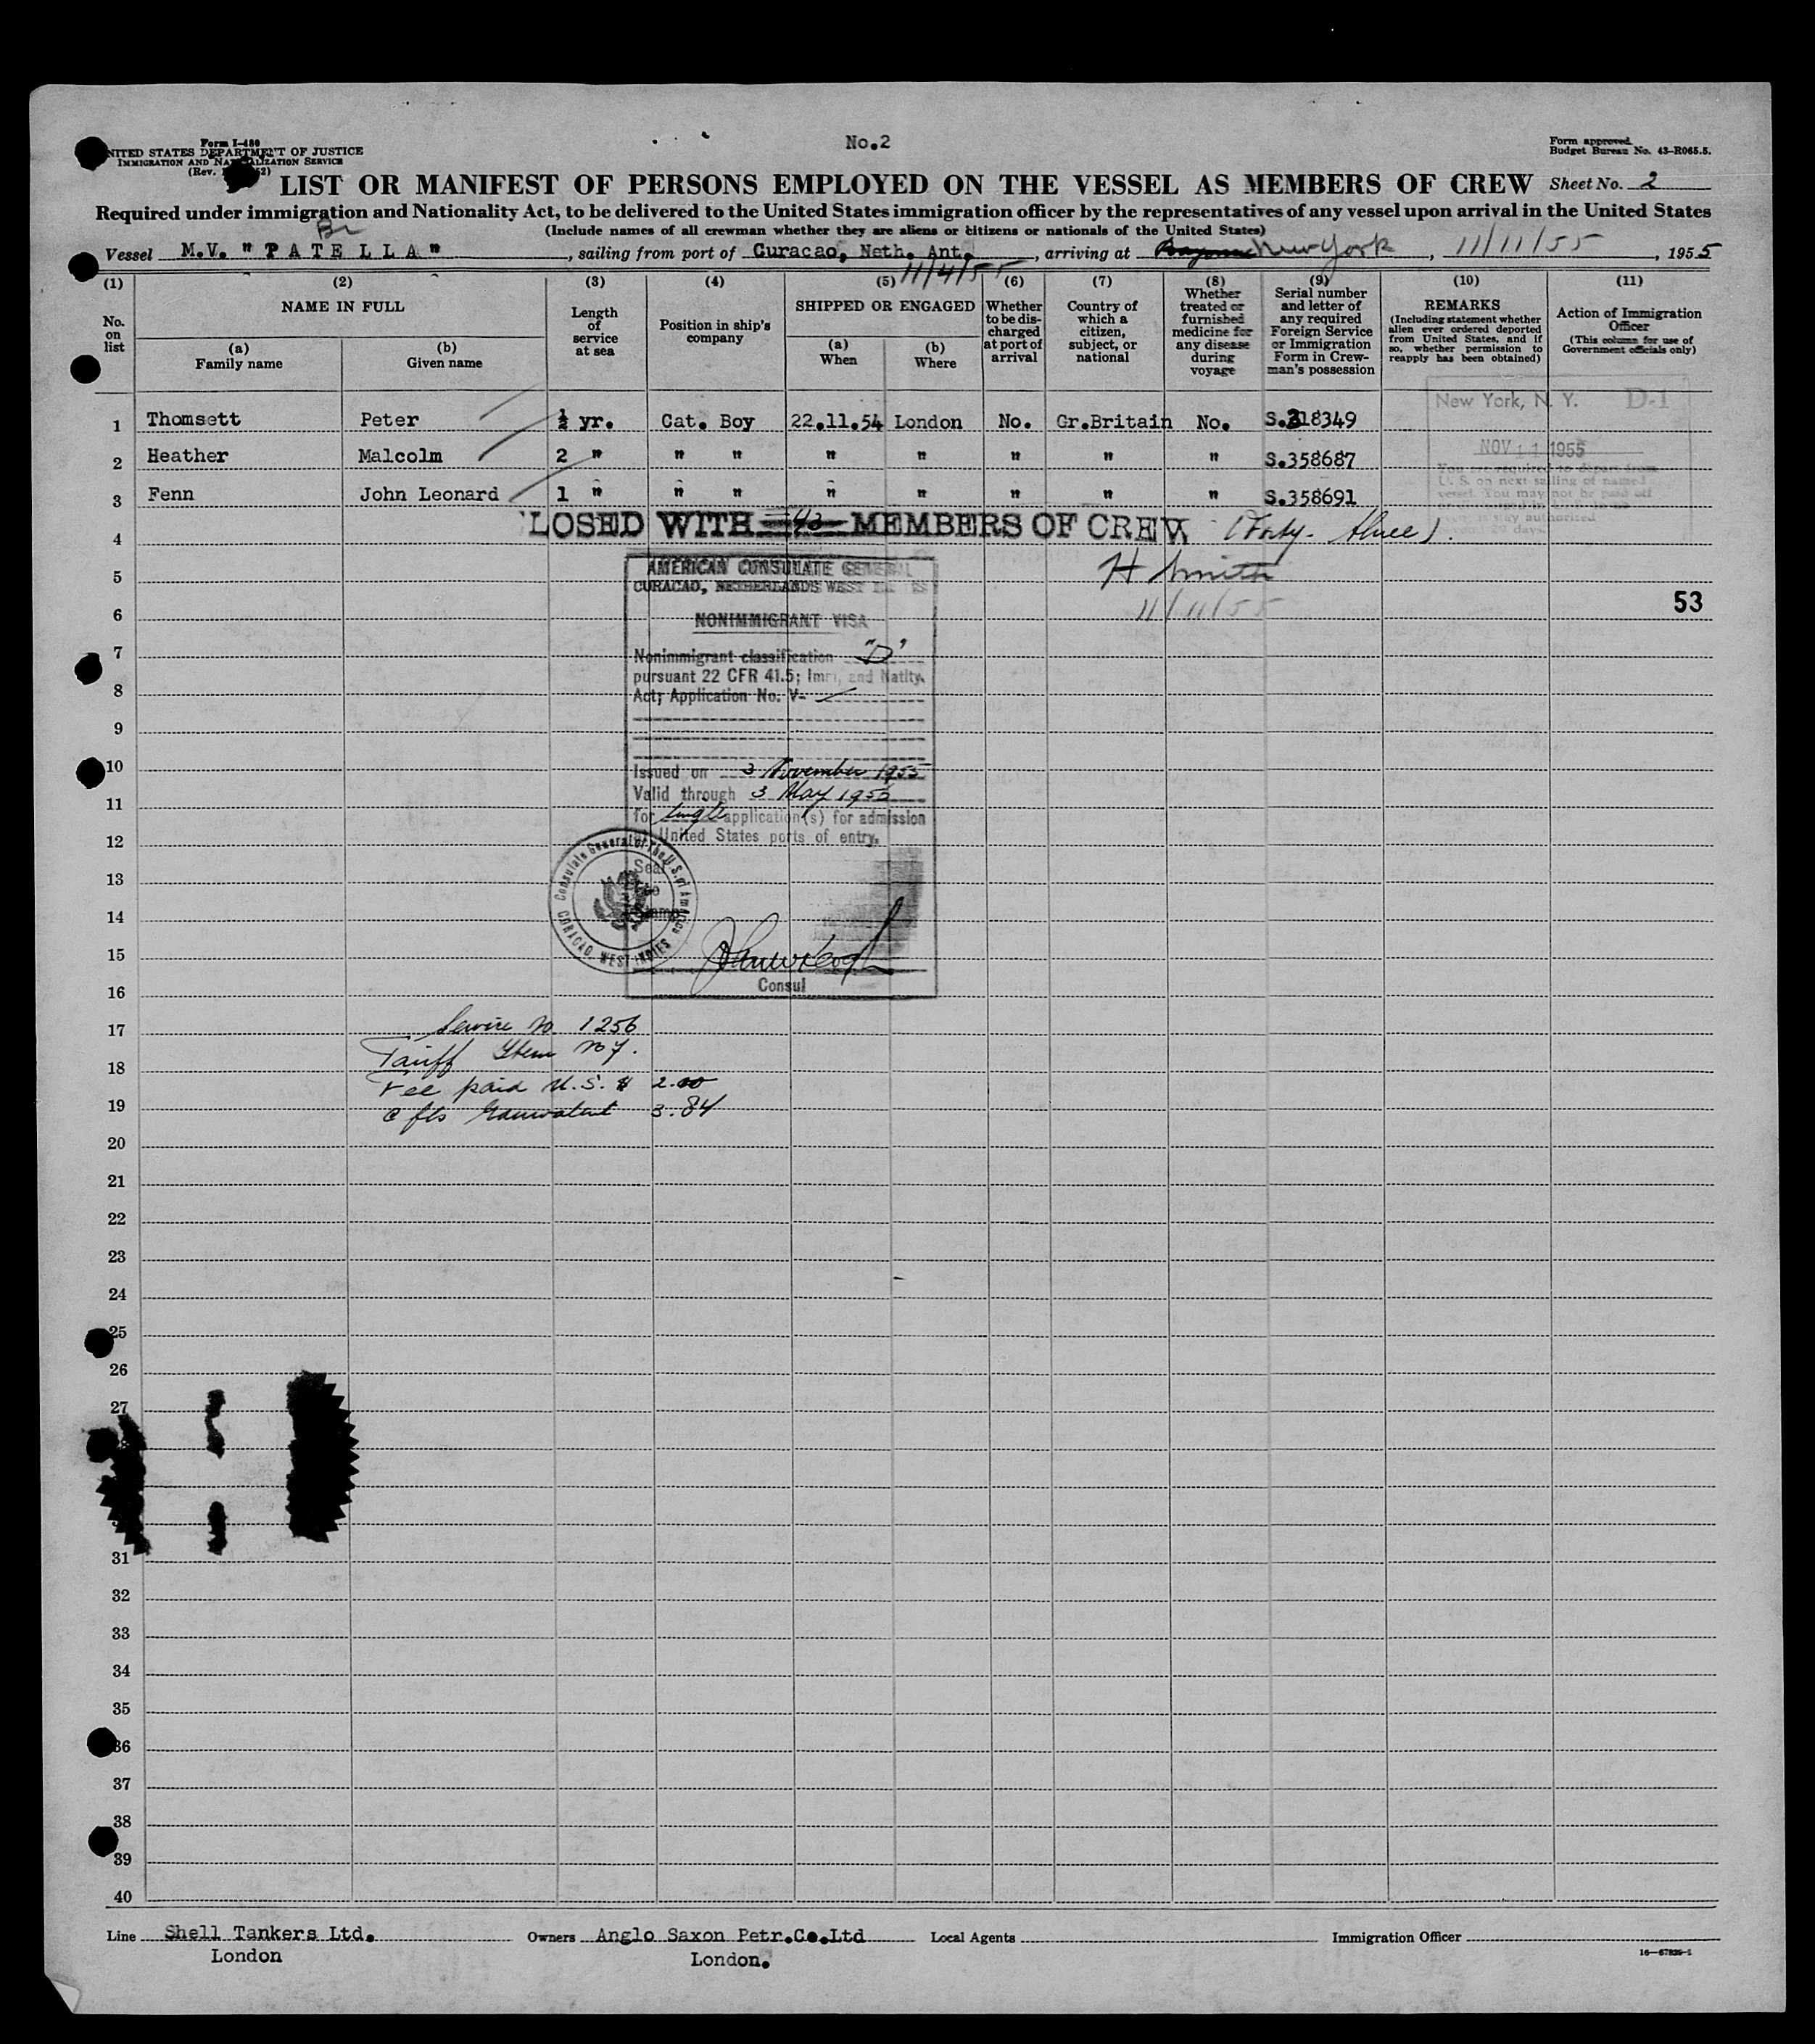 Form I-480
UNITED STATES DEPARTMENT OF JUSTICE
IMMIGRATION AND NATURALIZATION SERVICE
(Rev. 52)
No.2
Form approved.
Budget Bureau No. 43-R065.5.
LIST OR MANIFEST OF PERSONS EMPLOYED ON THE VESSEL AS MEMBERS OF CREW Sheet No. 2
Required under immigration and Nationality Act, to be delivered to the United States immigration officer by the representatives of any vessel upon arrival in the United States
(Include names of all crewman whether they are aliens or citizens or nationals of the United States)
Br
Vessel M.V. "PATELLA", sailing from port of Curacao, Neth. Ant., arriving at New York, 11/11/55, 1955
11/4/55
(1) (2) (3) (4) (5) (6) (7) (8) (9) (10) (11)
No. on list
NAME IN FULL
(a) Family name
(b) Given name
Length of service at sea
Position in ship's company
SHIPPED OR ENGAGED
(a) When
(b) Where
Whether to be discharged at port of arrival
Country of which a citizen, subject, or national
Whether treated or furnished medicine for any disease during voyage
Serial number and letter of any required Foreign Service or Immigration Form in Crewman's possession
REMARKS
(Including statement whether alien ever ordered deported from United States, and if so, whether permission to reapply has been obtained)
Action of Immigration Officer
(This column for use of Government officials only)
New York, N. Y. D-1
1 Thomsett Peter ½ yr. Cat. Boy 22.11.54 London No. Gr.Britain No. S.318349
NOV 11 1955
2 Heather Malcolm 2 " " " " " " " " S.358687
You are required to depart from
U. S. on next sailing of named
vessel. You may not be paid off
3 Fenn John Leonard 1 " " " " " " " " S.358691
CLOSED WITH 43 MEMBERS OF CREW (Forty-three).
4
H Smith
11/11/55
AMERICAN CONSULATE GENERAL
CURACAO, NETHERLANDS WEST INDIES
5
53
NONIMMIGRANT VISA
6
7
Nonimmigrant classification "D"
pursuant 22 CFR 41.5; Imm. and Natlty.
8
Act; Application No. V-
9
10
Issued on 3 November 1955
Valid through 3 May 1956
11
for single application(s) for admission
at United States ports of entry.
12
Consulate General of The U.S. of America
CURACAO, WEST INDIES
Seal
Fee
Stamp
13
14
15
Consul
16
17
Service No. 1256
Tariff Item No 7.
18
Fee paid U.S. $ 2.00
19
Equivalent 3.84
20
21
22
23
24
25
26
27
31
32
33
34
35
36
37
38
39
40
Line Shell Tankers Ltd.
London
Owners Anglo Saxon Petr.Co.Ltd
London.
Local Agents
Immigration Officer
16—67829-1